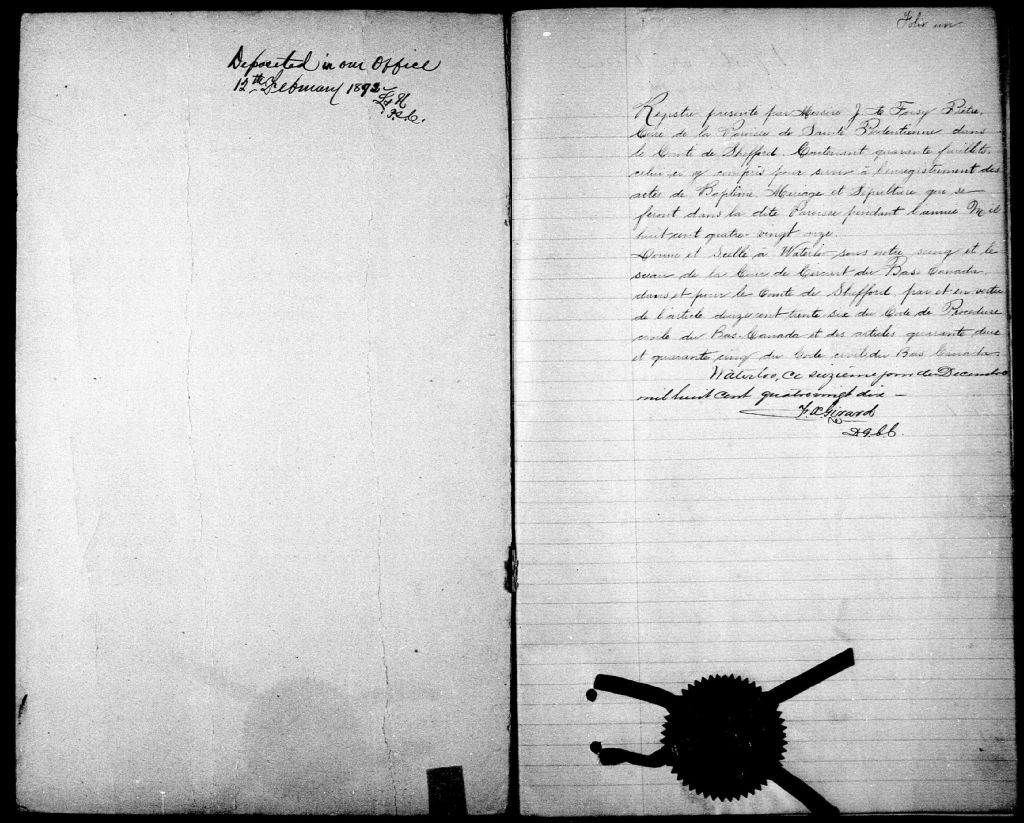 Deposited in our Office
12th February 1892
P.S.C.
Folio un
Registre presenté par Messire J. Prêtre,
Curé de la Paroisse de Sainte Pudentienne dans
le Comté de Shefford. Contenant quarante feuillets,
celui ci y compris pour servir à l'enregistrement des
actes de Baptême Mariage et Sépulture qui se
feront dans la dite Paroisse pendant l'année Mil
huit cent quatre vingt onze.
Donné et Scellé à Waterloo sous notre seing et le
sceau de la Cour de Circuit du Bas Canada,
dans et pour le Comté de Shefford, par et en vertu
de l'article douze cent trente six du Code de Procedure
civile du Bas-Canada et des articles quarante deux
et quarante cinq du Code civil du Bas Canada.
Waterloo, Ce seizieme jour de Decembre
mil huit cent quatre vingt dix —
F. X. Girard
D.G.C.C.